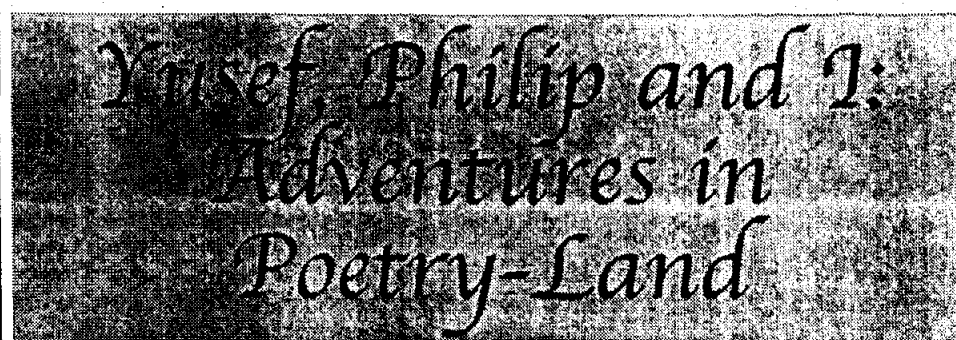 Yusef, Philip and I:
Adventures in
Poetry-Land